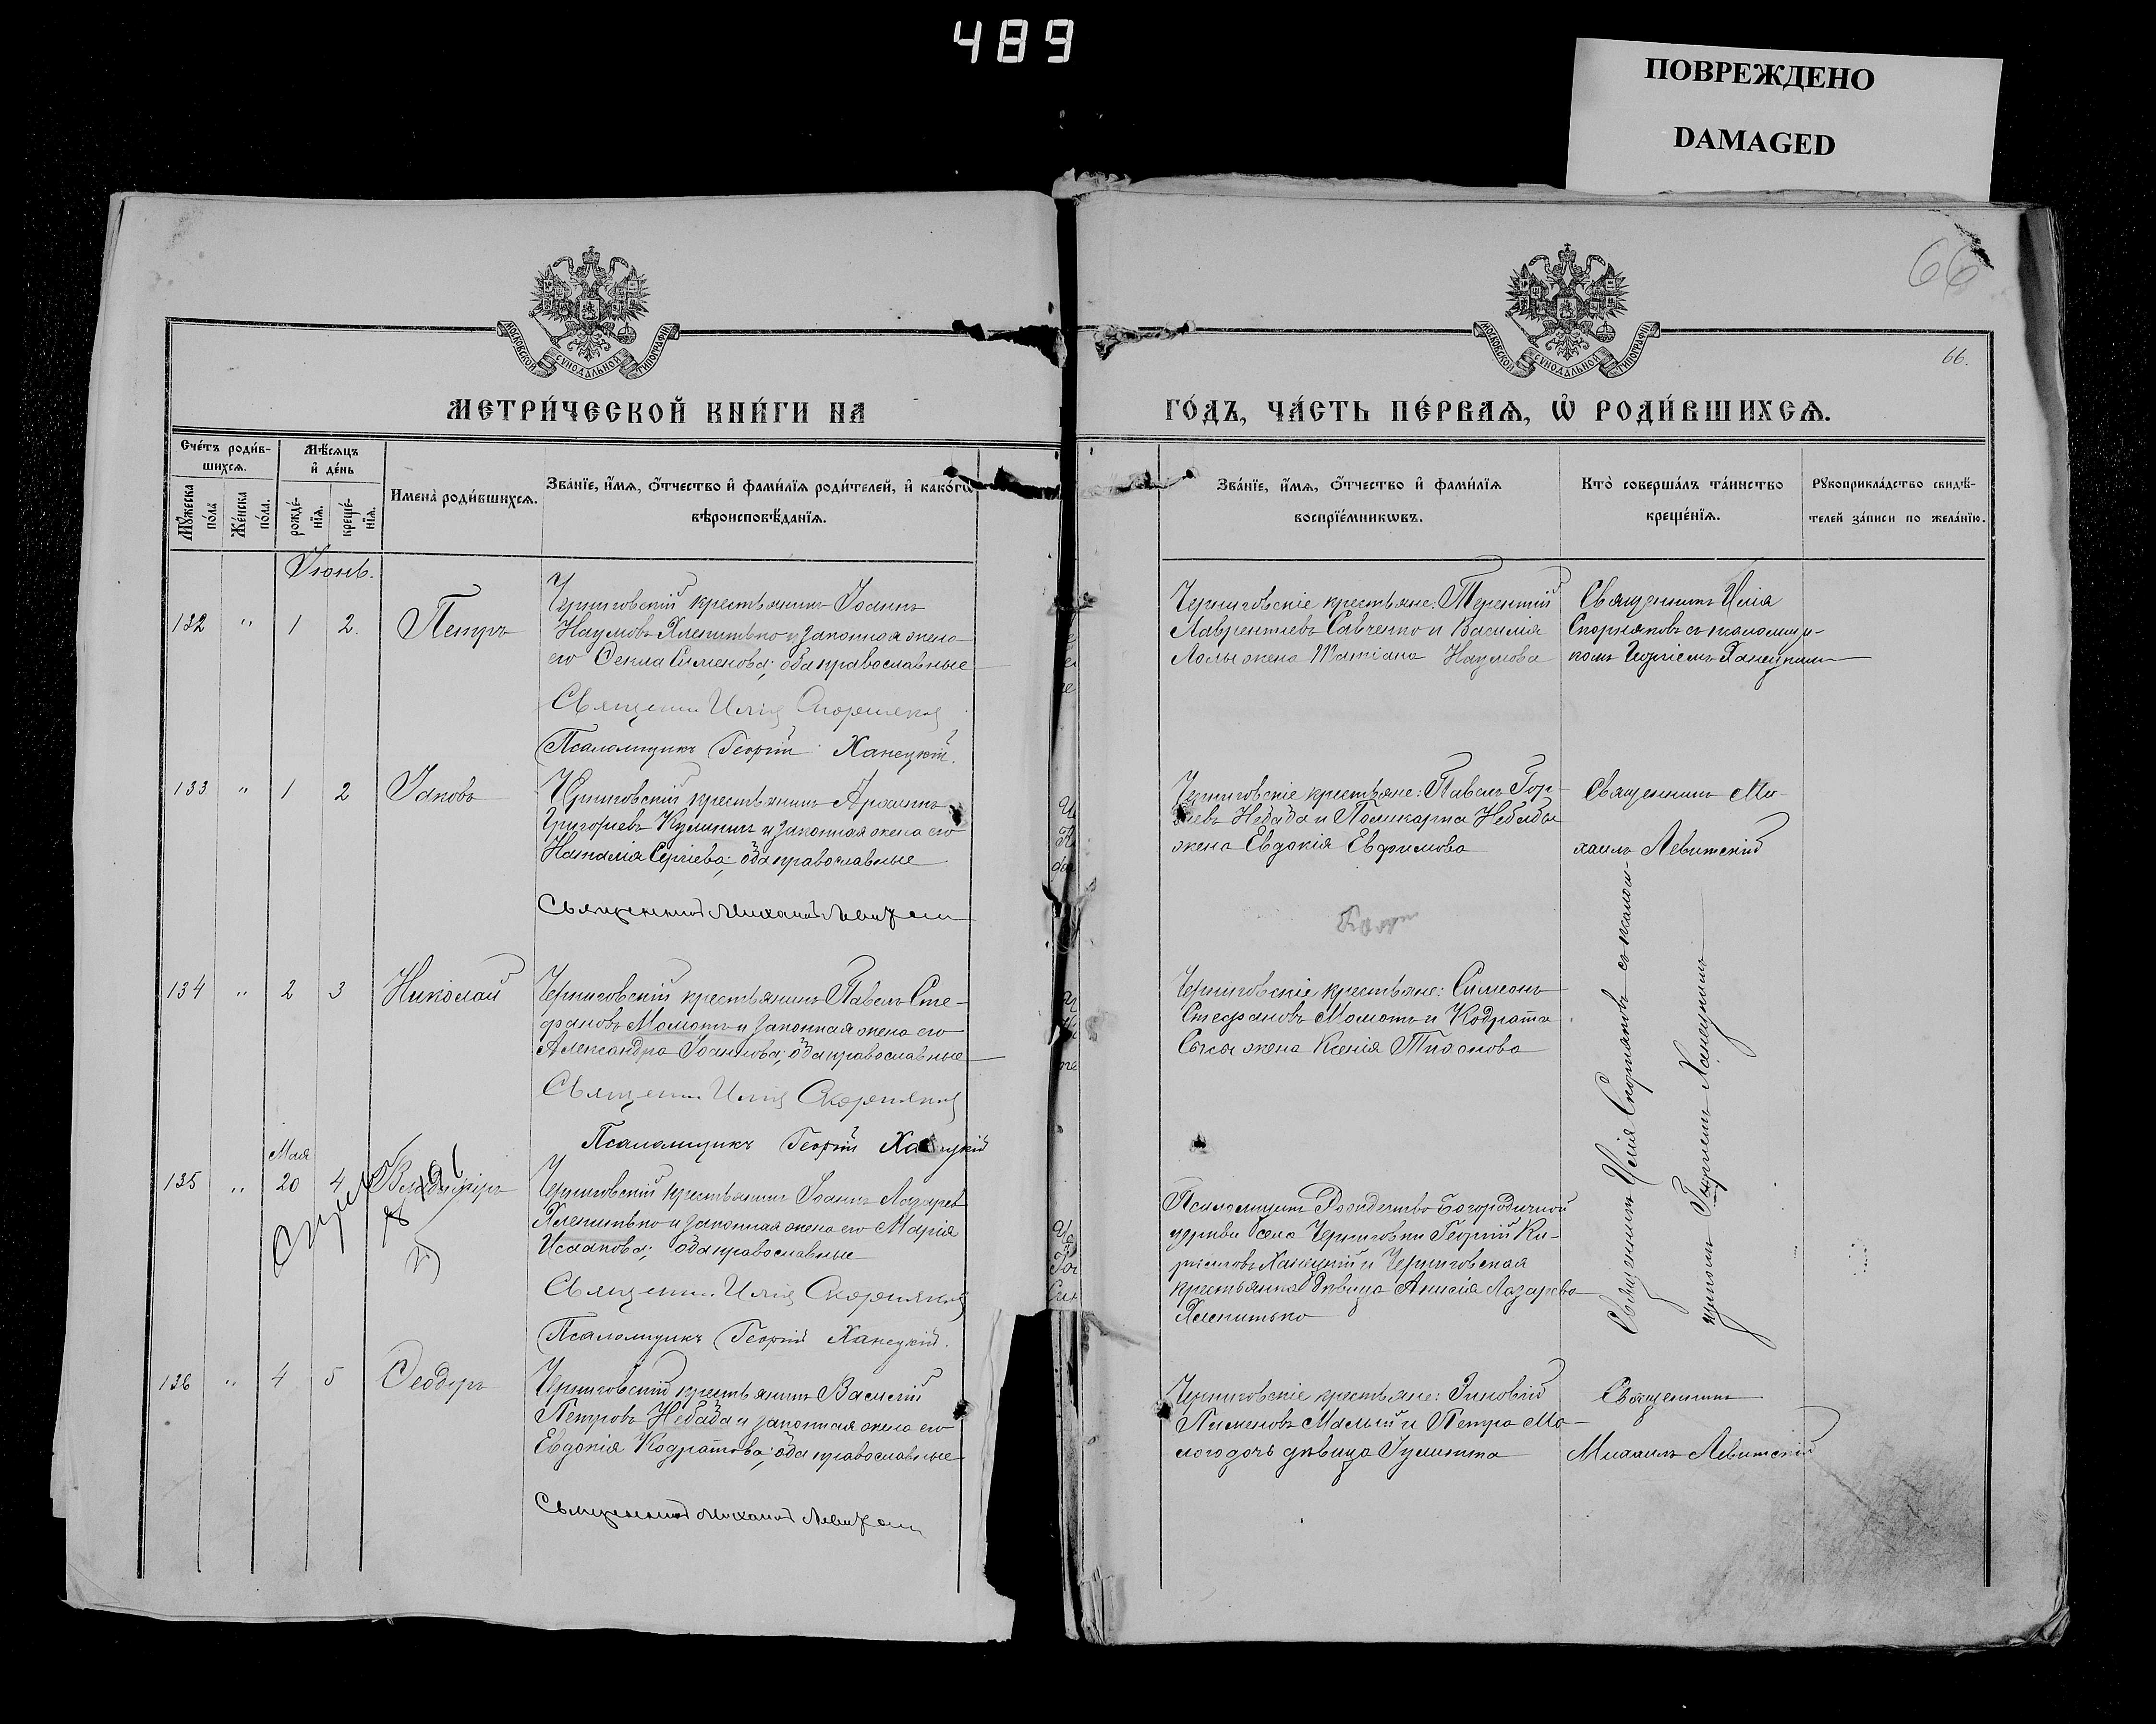 489
ПОВРЕЖДЕНО
DAMAGED
66
66.
МОСКОВСКОЙ СѴНОДАЛЬНОЙ ТИПОГРАФІИ
МОСКОВСКОЙ СѴНОДАЛЬНОЙ ТИПОГРАФІИ
МЕТРИ́ЧЕСКОЙ КНИ́ГИ НА
ГО́ДЪ, ЧА́СТЬ ПЕ́РВАѦ, Ѡ҆ РОДИ́ВШИХСѦ.
Сче́тъ роди́в-
шихсѧ.
Мꙋ́жеска по́ла
Же́нска по́ла.
Мѣ́сѧцъ
и҆ де́нь
рожде́-
нїѧ.
креще́-
нїѧ.
Имена̀ роди́вшихсѧ.
Зва́нїе, и҆́мѧ, ѻ҆́тчество и҆ фами́лїѧ роди́телей, и҆ како́гѡ
вѣроисповѣ́данїѧ.
Зва́нїе, и҆́мѧ, ѻ҆́тчество и҆ фами́лїѧ
воспрїе́мникѡвъ.
Кто̀ соверша́лъ та́инство
креще́нїѧ.
Рꙋкоприкла́дство свидѣ́-
телей за́писи по жела́нїю.
Іюнь.
132 " 1 2. Петръ
Черниговскій крестьянинъ Іоаннъ
Наумовъ Хленитько и законная жена
его Ѳекла Сименова; оба православные
Священни Илія Скорняков
Псаломщикъ Георгій Ханецкій.
Черниговскіе крестьяне: Терентій
Лаврентіевъ Савченко и Василія
жена Татіана Наумова
Священникъ Илія
Скорняковъ съ псаломщи-
комъ Георгіемъ Ханецкимъ
133 " 1 2 Іаковъ
Черниговскій крестьянинъ
Григорьевъ Куликъ и законная жена его
Наталія Сергіева; оба православные
Священникъ Михаилъ Левитскій
Черниговскіе крестьяне: Павелъ Гор-
Небаба и Поликарпа Небабы
жена Евдокія Евфимова
Священникъ Ми-
хаилъ Левитскій
134 " 2 3 Николай
Черниговскій крестьянинъ Павелъ Сте-
фановъ Момотъ и законная жена его
Александра Іоаннова; оба православные
Священни Илія Скорняков
Псаломщикъ Георгій Ханецкій
Черниговскіе крестьяне: Симеонъ
Стефановъ Момотъ и Кодрата
жена Ксенія
Священникъ Илія Скорняковъ съ псалом-
щикомъ Георгіемъ Ханецкимъ
Мая
135 " 20 4 Владиміръ
Черниговскій крестьянинъ Іоаннъ Лазарев
Хленитько и законная жена его Марія
Исаакова; оба православные
Священни Илія Скорняков
Псаломщикъ Георгій Ханецкій.
Псаломщикъ Рождество Богородичной
церкви села Черниговки Георгій Ки-
Ханецкій и Черниговская
крестьянка дѣвица Анисія Лазарева
Хленитько
136 " 4 5 Ѳеодоръ
Черниговскій крестьянинъ Василій
Петровъ Небаба и законная жена его
Евдокія Кодратова; оба православные
Священникъ Михаилъ Левитскій
Черниговскіе крестьяне: Зиновій
Пименовъ Малый и Петра Ма-
лого дочь дѣвица Іулитта
Священникъ
Михаилъ Левитскій